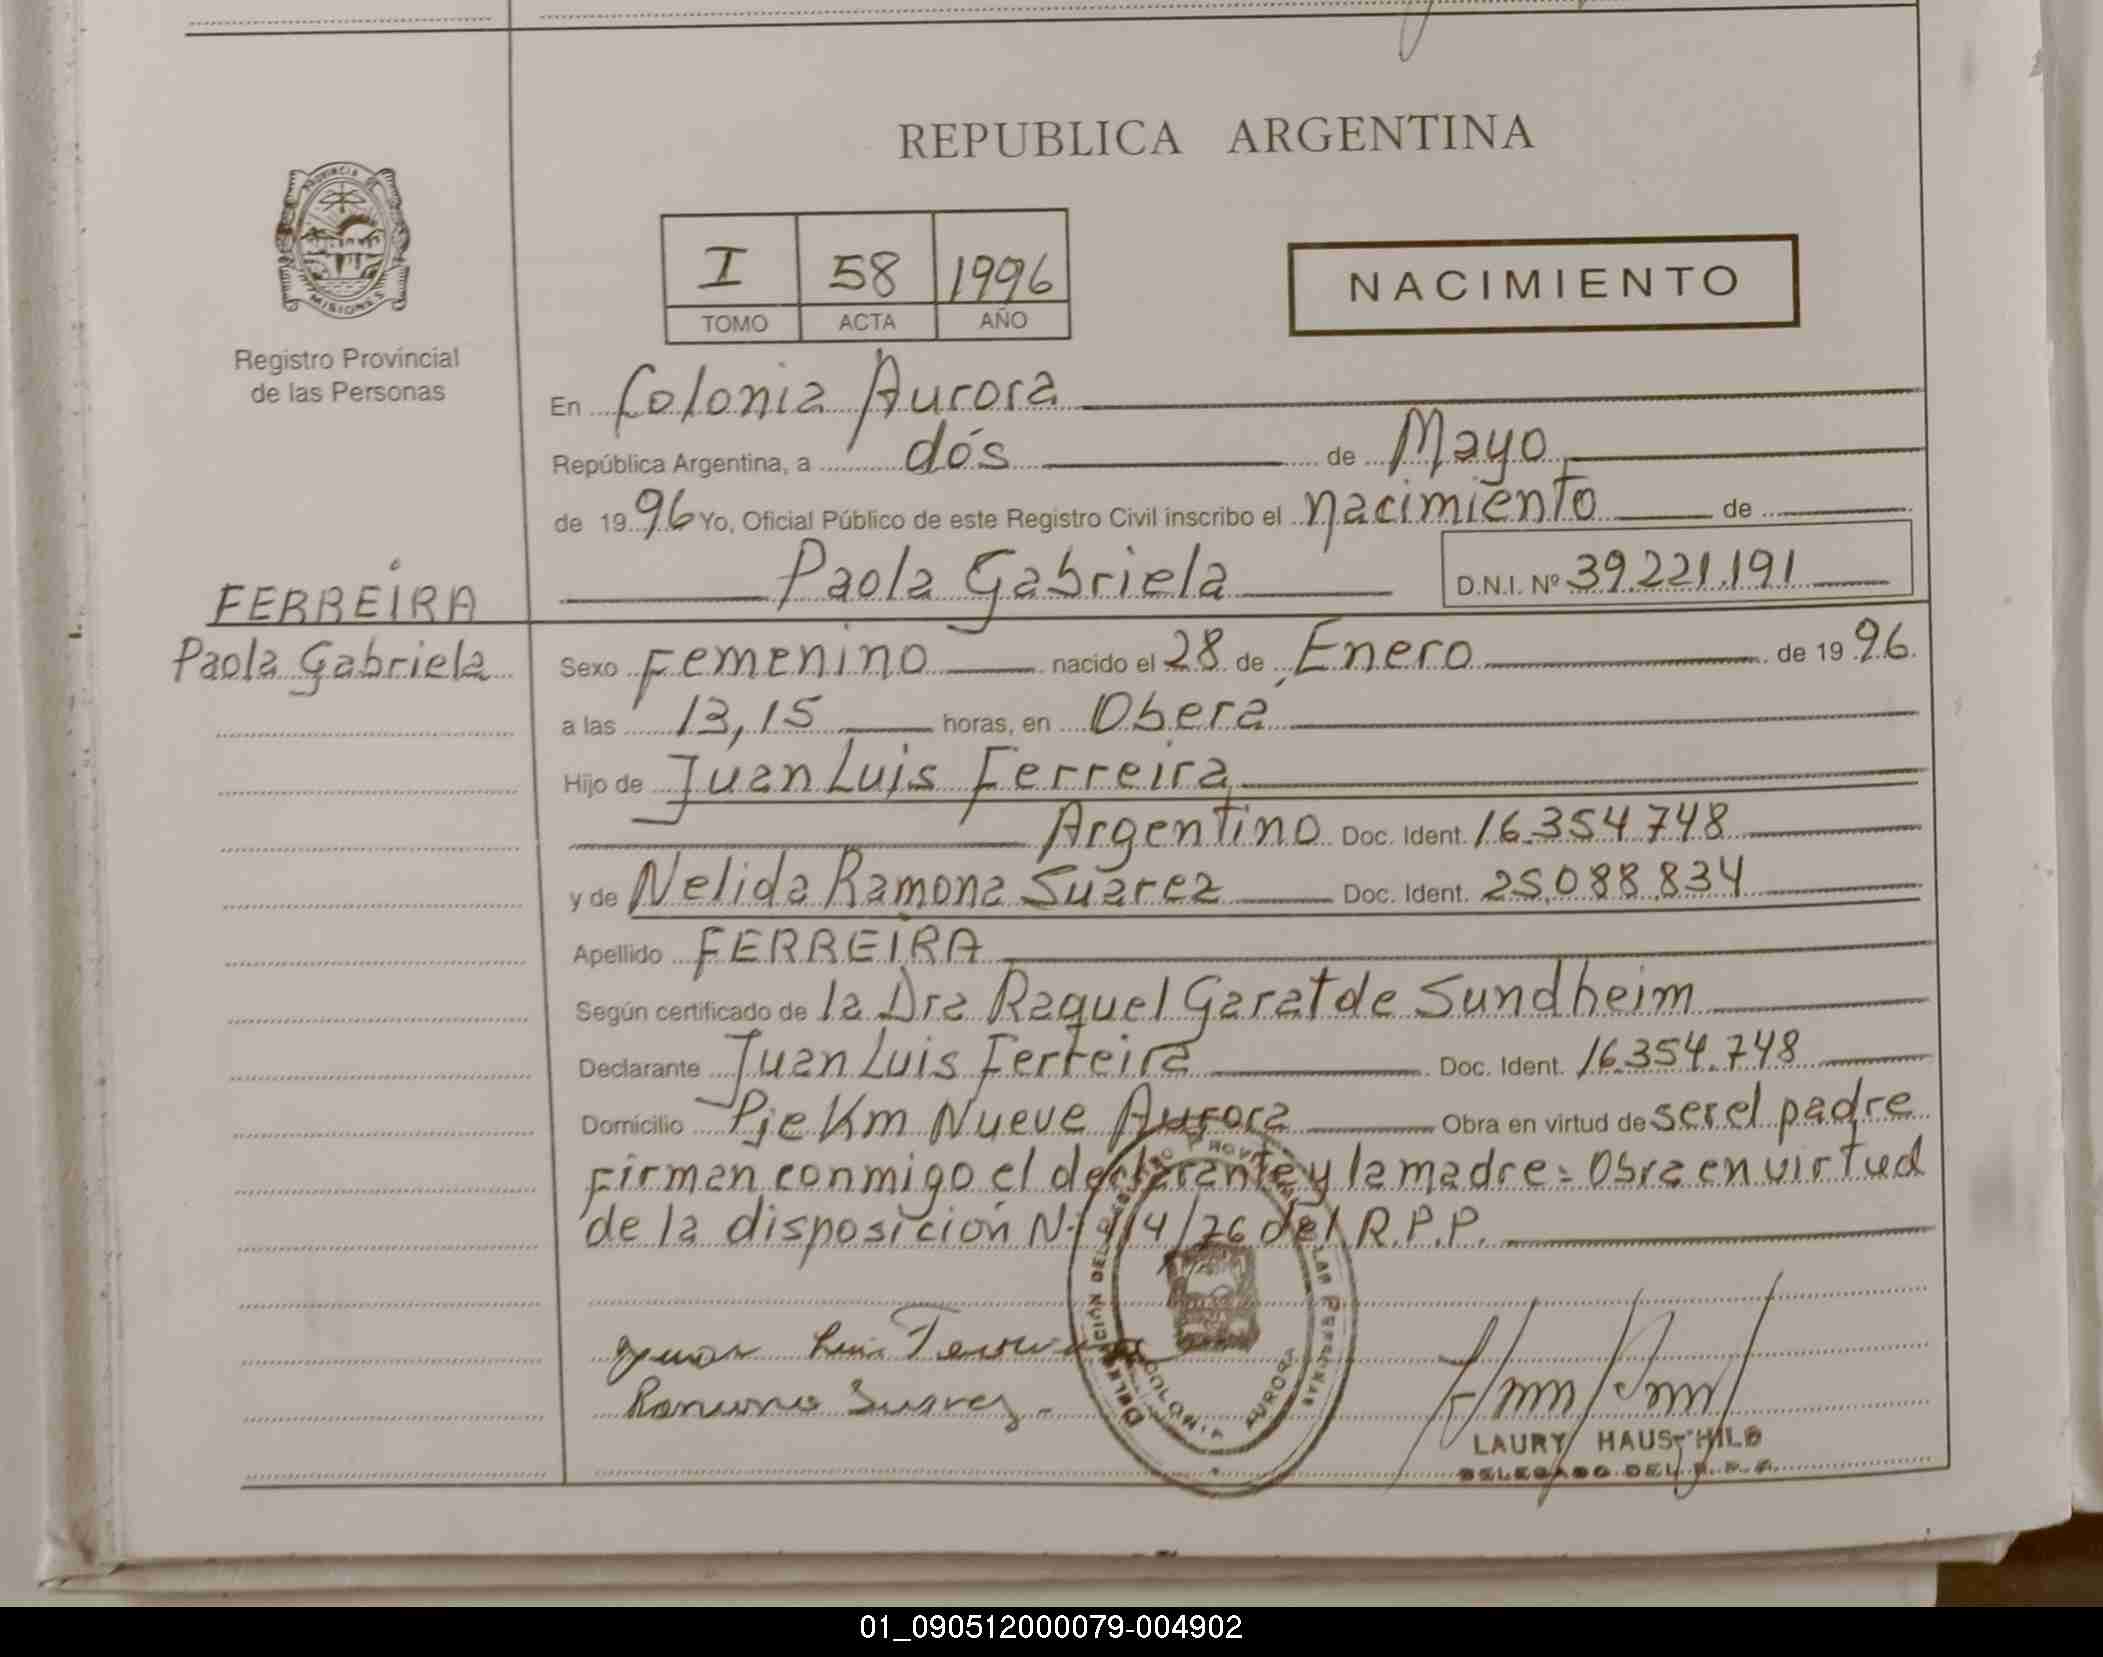 REPUBLICA ARGENTINA
PROVINCIA DE
MISIONES
Registro Provincial
de las Personas
I 58 1996
TOMO ACTA AÑO
NACIMIENTO
En Colonia Aurora
República Argentina, a dós de Mayo
de 1996 Yo, Oficial Público de este Registro Civil inscribo el nacimiento de
Paola Gabriela D.N.I. Nº 39.221.191
FERREIRA
Paola Gabriela
Sexo Femenino nacido el 28 de Enero de 1996
a las 13,15 horas, en Oberá
Hijo de Juan Luis Ferreira
Argentino Doc. Ident. 16.354.748
y de Nelida Ramona Suarez Doc. Ident. 25.088.834
Apellido FERREIRA
Según certificado de la Dra Raquel Garat de Sundheim
Declarante Juan Luis Ferreira Doc. Ident. 16.354.748
Domicilio Pje Km Nueve Aurora Obra en virtud de ser el padre
Firman conmigo el declarante y la madre = Obra en virtud
de la disposición Nº 114/76 del R.P.P.
Juan Luis Ferreira
Ramona Suarez.
COLONIA AURORA
LAURY HAUSCHILD
DELEGADO DEL R.P.P.
01_090512000079-004902